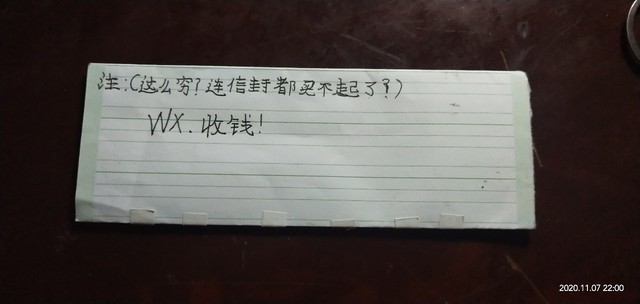 注:(这么穷?连信封都买不起了?)
WX.收钱!
2020.11.07 22:00